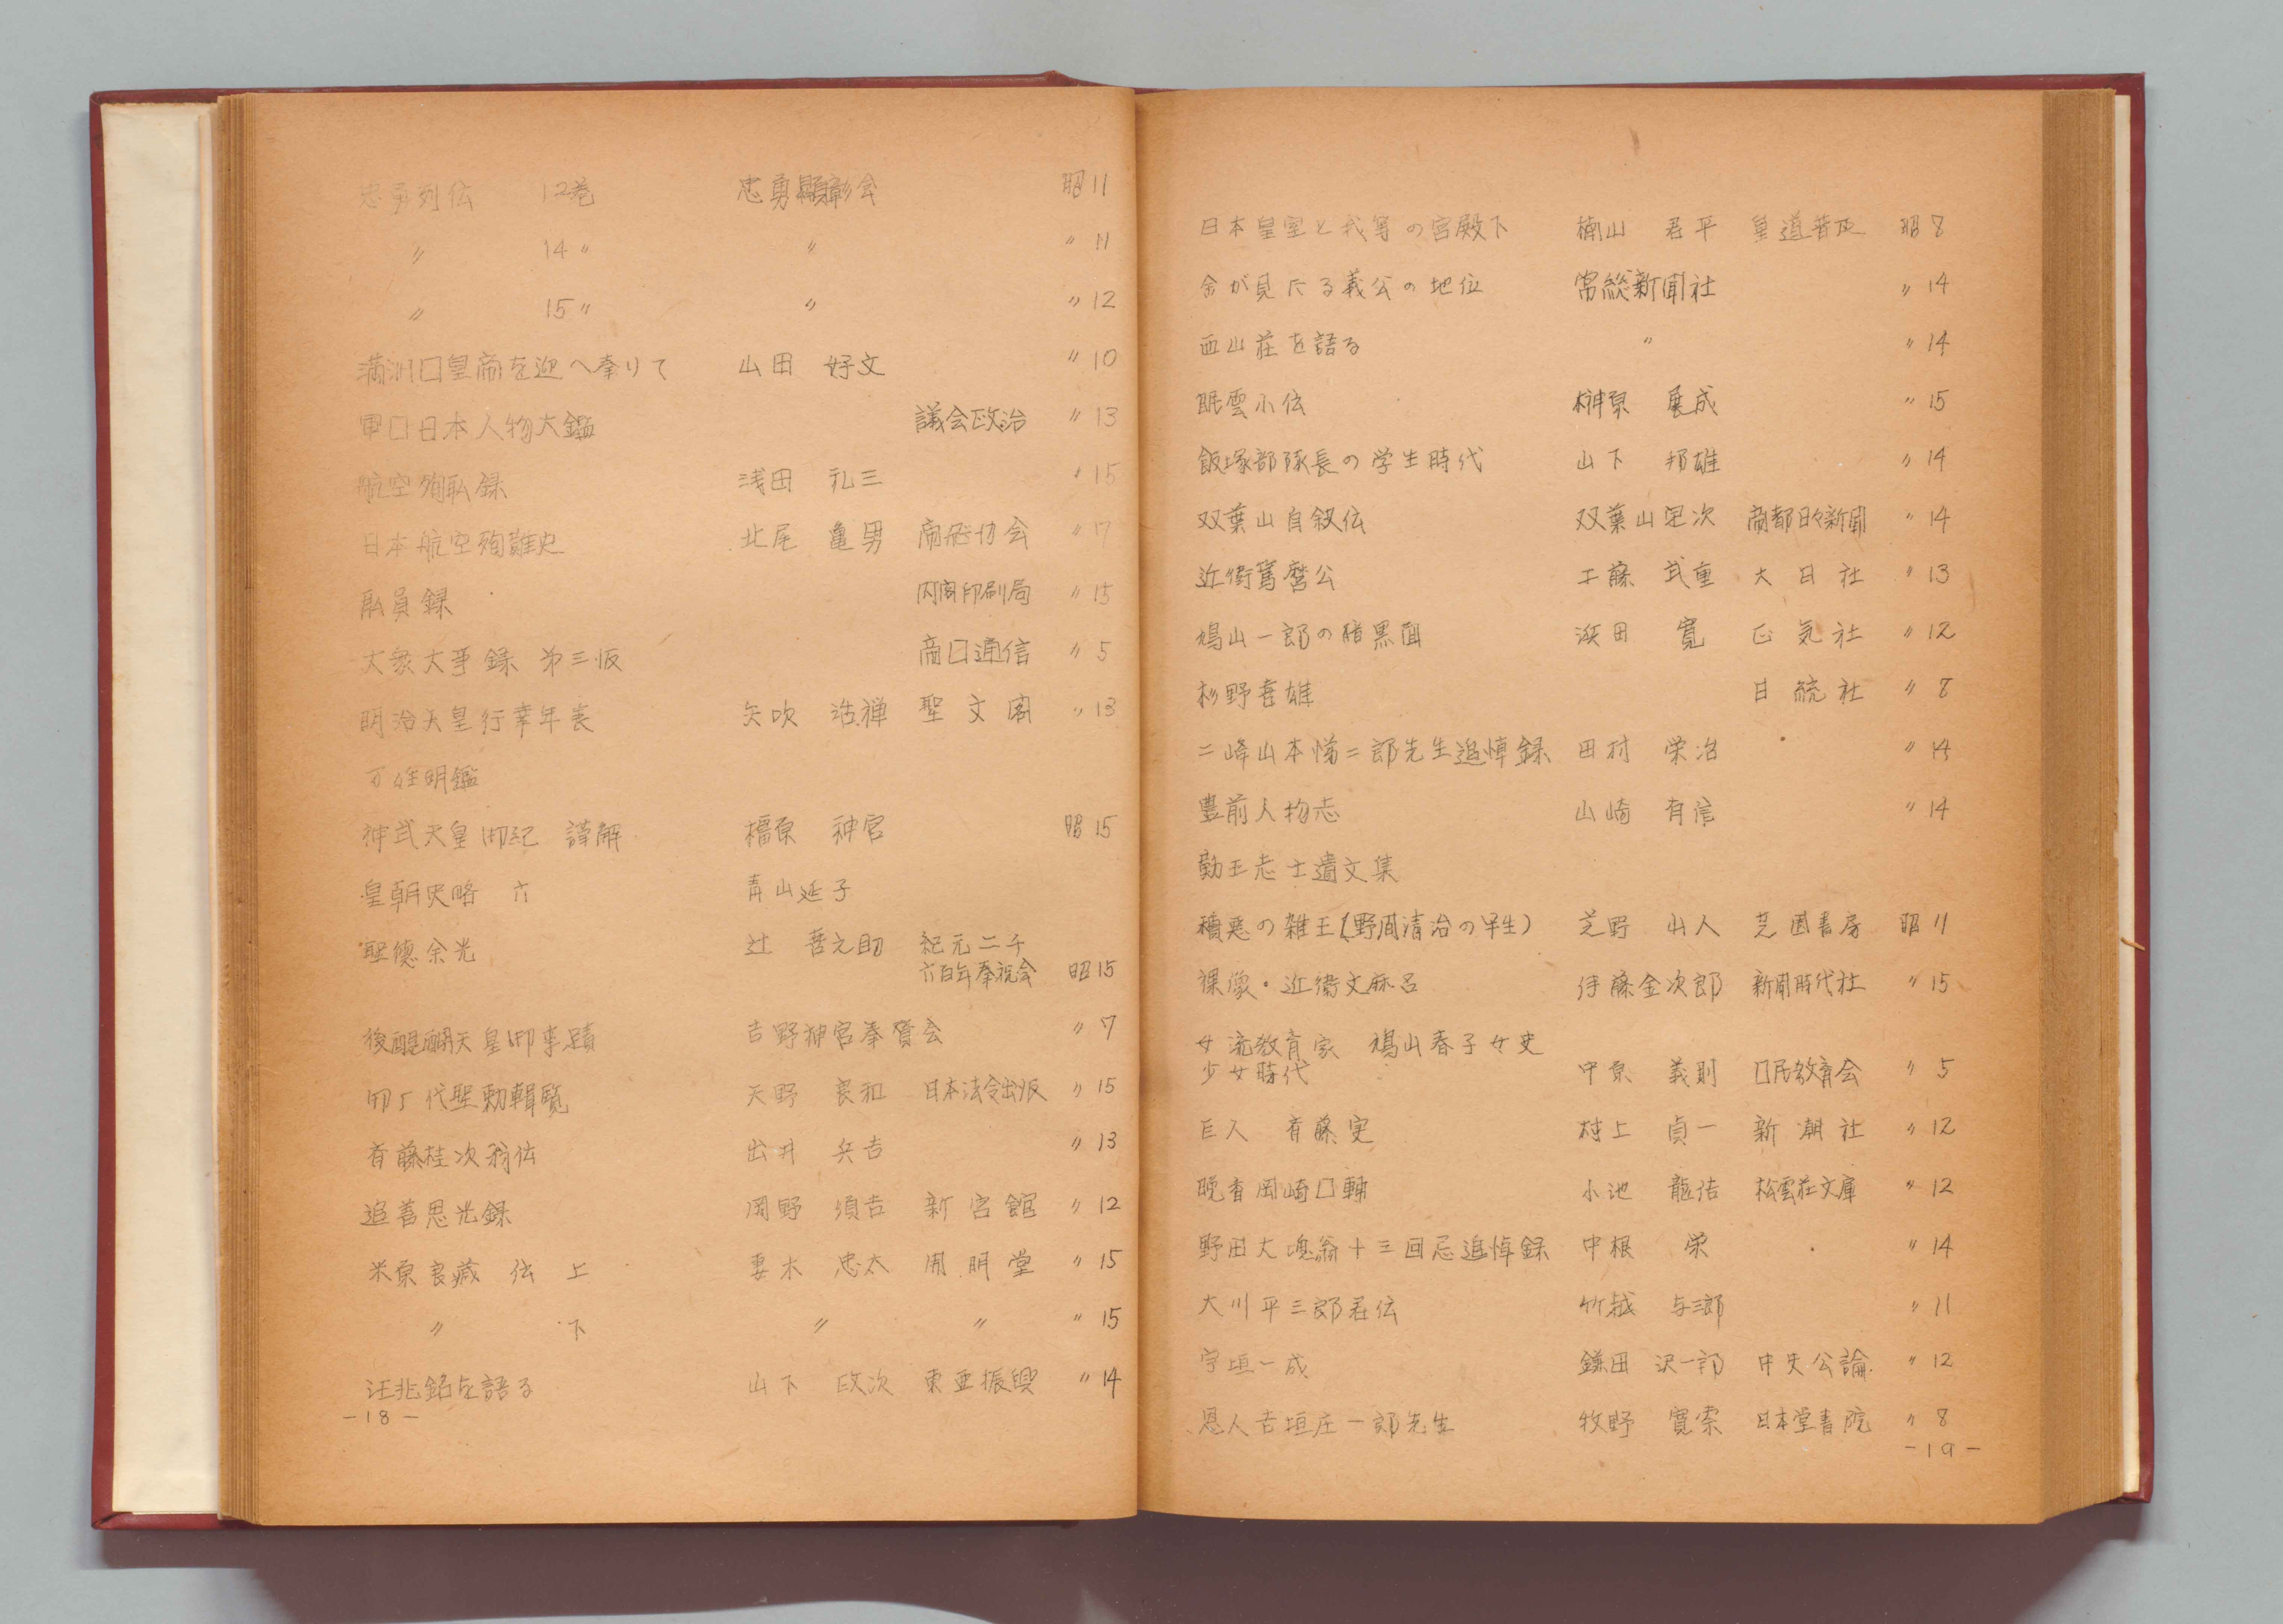 忠勇列伝 12巻 忠勇顕彰会 昭11
〃 14〃 〃 〃11
〃 15〃 〃 〃12
満洲口皇帝を迎へ奉りて 山田 好文 〃10
軍口日本人物大鑑 議会政治 〃13
航空殉职録 浅田 礼三 〃15
日本航空殉難史 北尾 亀男 帝飛协会 〃17
职員録 内閣印刷局 〃15
大衆人事録 第三版 帝口通信 〃5
明治天皇行幸年表 矢吹 活禅 聖文閣 〃13
万姓明鑑
神武天皇御紀 謹解 橿原 神宮 昭15
皇朝史略 六 青山延子
聖徳余光 辻 善之助 紀元二千
六百年奉祝会 昭15
後醍醐天皇御事蹟 吉野神宮奉賛会 〃7
御歴代聖勅輯覧 天野 良和 日本法令出版 〃15
斉藤桂次翁伝 出井 兵吉 〃13
追善思光録 岡野 須吉 新宮館 〃12
米原良蔵 伝 上 妻木 忠太 開明堂 〃15
〃 下 〃 〃 〃15
汪兆銘を語る 山下 政次 東亜振興 〃14
-18-
日本皇室と我等の宮殿下 楠山 君平 皇道普及 昭8
余が見たる義公の地位 常総新聞社 〃14
西山荘を語る 〃 〃14
眠雲小伝 榊原 展成 〃15
飯塚部隊長の学生時代 山下 邦雄 〃14
双葉山自叙伝 双葉山定次 帝都日々新聞 〃14
近衛篤麿公 工藤 武重 大日社 〃13
鳩山一郎の暗黒面 浜田 寛 正気社 〃12
杉野喜雄 日統社 〃8
二峰山本悌二郎先生追悼録 田村 栄治 〃14
豊前人物志 山崎 有信 〃14
勤王志士遺文集
積悪の雑王(野間清治の半生) 芝野 山人 芝園書房 昭11
裸像・近衛文麻呂 伊藤金次郎 新聞時代社 〃15
女流教育家 鳩山春子女史
少女時代 中原 義則 口民教育会 〃5
巨人 斉藤実 村上 貞一 新潮社 〃12
晩香岡崎口輔 小池 龍佶 松雲荘文庫 〃12
野田大塊翁十三回忌追悼録 中根 栄 〃14
大川平三郎君伝 竹越 与三郎 〃11
宇垣一成 鎌田 沢一郎 中央公論 〃12
恩人吉垣庄一郎先生 牧野 寛索 日本堂書院 〃8
-19-